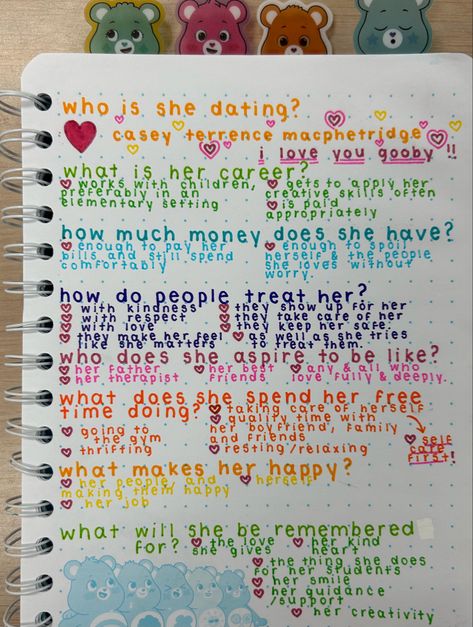 who is she dating?
casey terrence macphetridge
i love you gooby !!
what is her career?
works with children,
preferably in an
elementary setting
gets to apply her
creative skills often
is paid
appropriately
how much money does she have?
enough to pay her
bills and still spend
comfortably
enough to spoil
herself & the people
she loves without
worry.
how do people treat her?
with kindness
with respect
with love
they make her feel
like she matters
they show up for her
they take care of her
they keep her safe.
as well as she tries
to treat them.
who does she aspire to be like?
her father
her therapist
her best
friends
any & all who
love fully & deeply.
what does she spend her free
time doing?
going to
the gym
thrifting
taking care of herself
quality time with
her boyfriend, family
and friends
resting/relaxing
self
care
first!
what makes her happy?
her people, and
making them happy
her job
herself
what will she be remembered
for?
the love
she gives
her kind
heart
the thing she does
for her students
her smile
her guidance
/support
her creativity